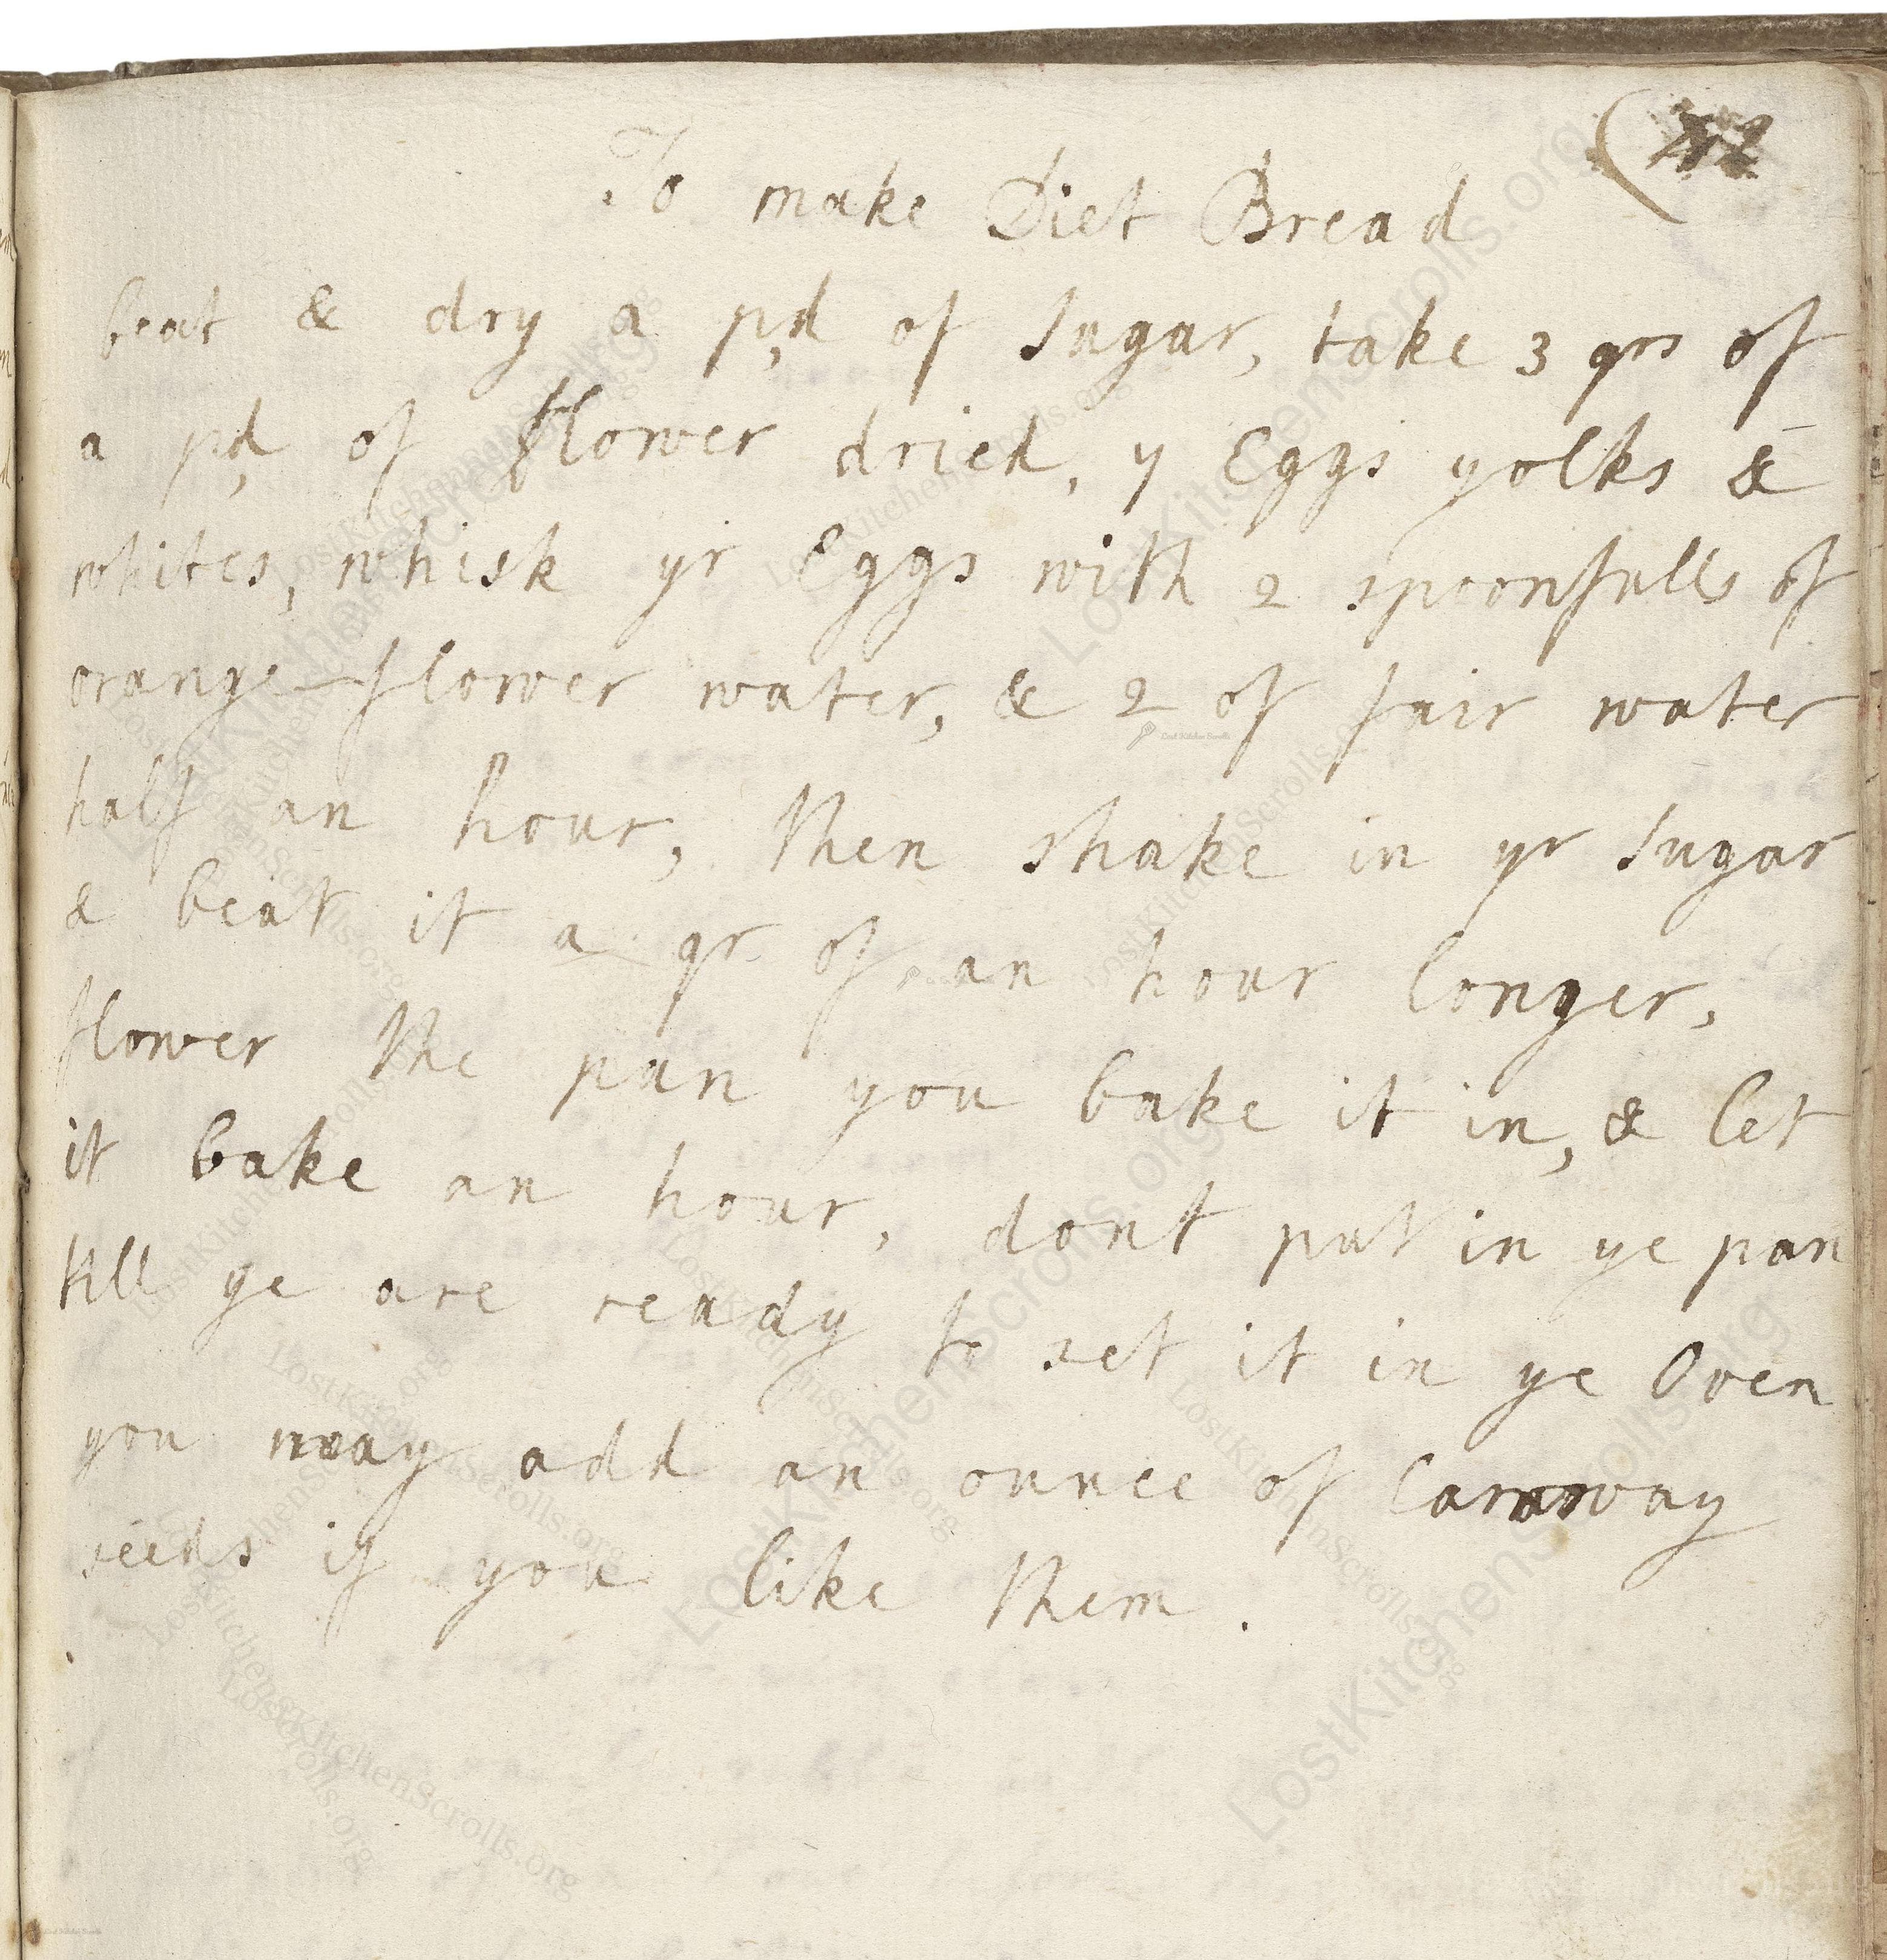 To make Diet Bread
beat & dry a pd of Sugar, take 3 qrs of
a pd of flower dried, 7 Eggs yolks &
whites, whisk yr Eggs with 2 spoonfulls of
orange-flower water, & 2 of fair water
half an hour, then shake in yr Sugar
& beat it a qr of an hour longer,
flower the pan you bake it in, & let
it bake an hour, dont put in ye pan
till ye are ready to set it in ye Oven
you may add an ounce of Carraway
seeds if you like them.